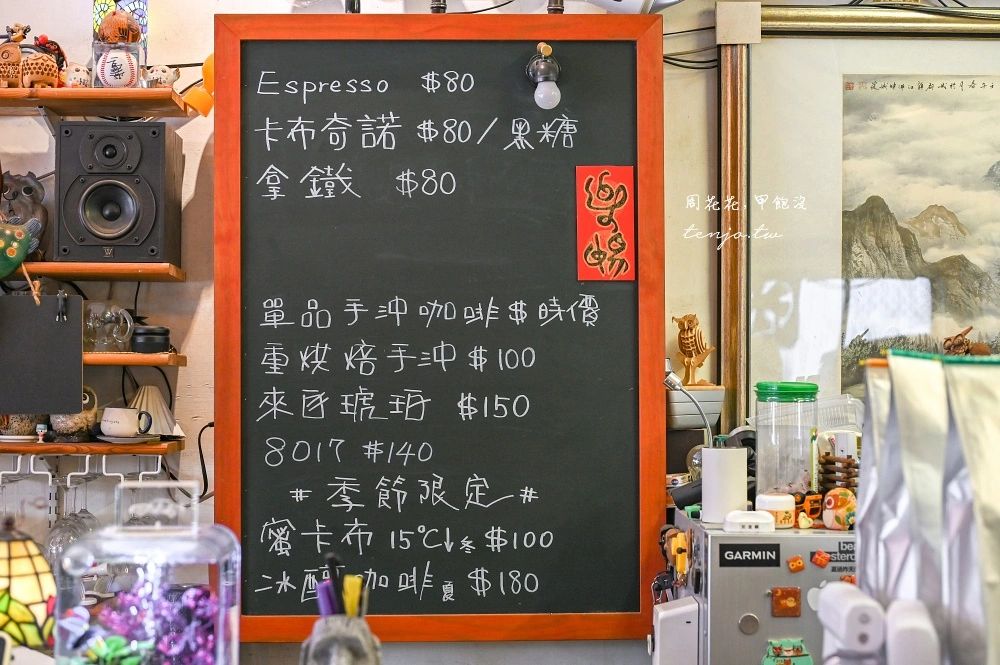 Espresso $80
卡布奇諾 $80/黑糖
拿鐵 $80
樂暢
單品手沖咖啡 $時價
重烘焙手沖 $100
來自琥珀 $150
8017 $140
#季節限定#
蜜卡布 15℃↓冬 $100
冰釀咖啡夏 $180
周花花,甲飽沒
tenjo.tw
GARMIN